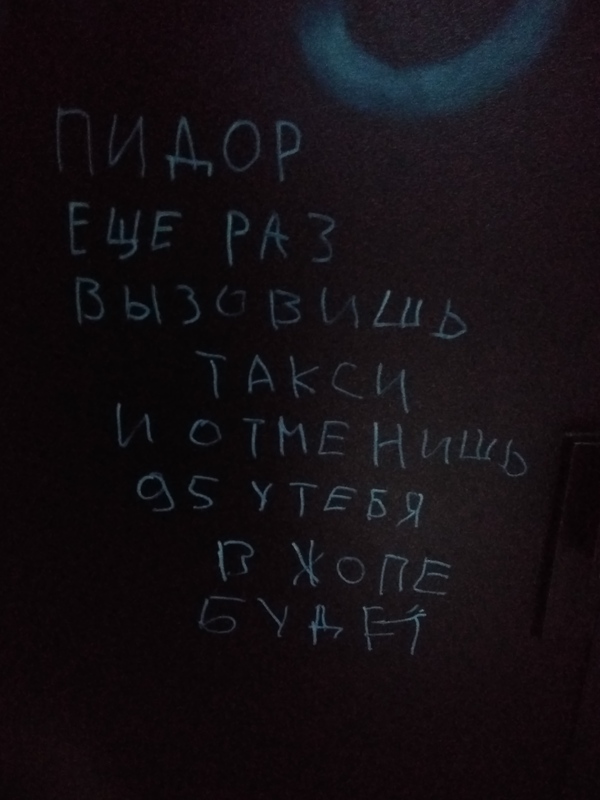 ПИДОР
ЕЩЕ РАЗ
ВЫЗОВИШЬ
ТАКСИ
И ОТМЕНИШЬ
95 У ТЕБЯ
В ЖОПЕ
БУДЕТ